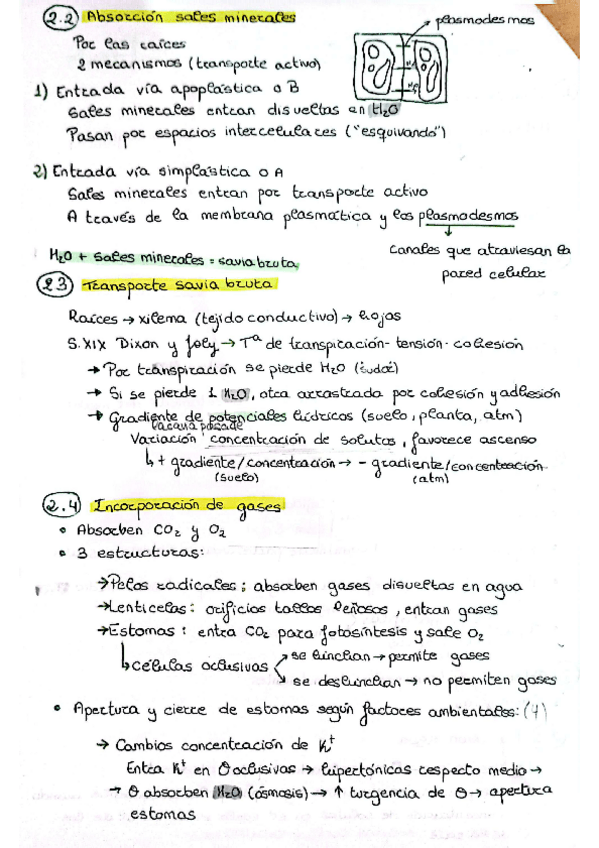 2.2 Absorción sales minerales
plasmodesmos
Por las raíces
2 mecanismos (transporte activo)
1) Entrada vía apoplástica o B
Sales minerales entran disueltas en H₂O
Pasan por espacios intercelulares ("esquivando")
2) Entrada vía simplástica o A
Sales minerales entran por transporte activo
A través de la membrana plasmática y los plasmodesmos
↓
canales que atraviesan la
pared celular
H₂O + sales minerales = savia bruta
2.3 Transporte savia bruta
Raíces → xilema (tejido conductivo) → hojas
S.XIX Dixon y Joly → Tª de transpiración-tensión-cohesión
→ Por transpiración se pierde H₂O (sudar)
→ Si se pierde 1 H₂O, otra arrastrada por cohesión y adhesión
→ Gradiente de potenciales hídricos (suelo, planta, atm)
Variación concentración de solutos, favorece ascenso
↳ + gradiente/concentración → - gradiente/concentración
(suelo) (atm)
2.4 Incorporación de gases
• Absorben CO₂ y O₂
• 3 estructuras:
→ Pelos radicales: absorben gases disueltas en agua
→ Lenticelas: orificios tallos leñosos, entran gases
→ Estomas: entra CO₂ para fotosíntesis y sale O₂
↳ células oclusivas
se hinchan → permite gases
se deshinchan → no permiten gases
• Apertura y cierre de estomas según factores ambientales: (4)
→ Cambios concentración de K⁺
Entra K⁺ en θ oclusivas → hipertónicas respecto medio →
→ θ absorben H₂O (ósmosis) → ↑ turgencia de θ → apertura
estomas